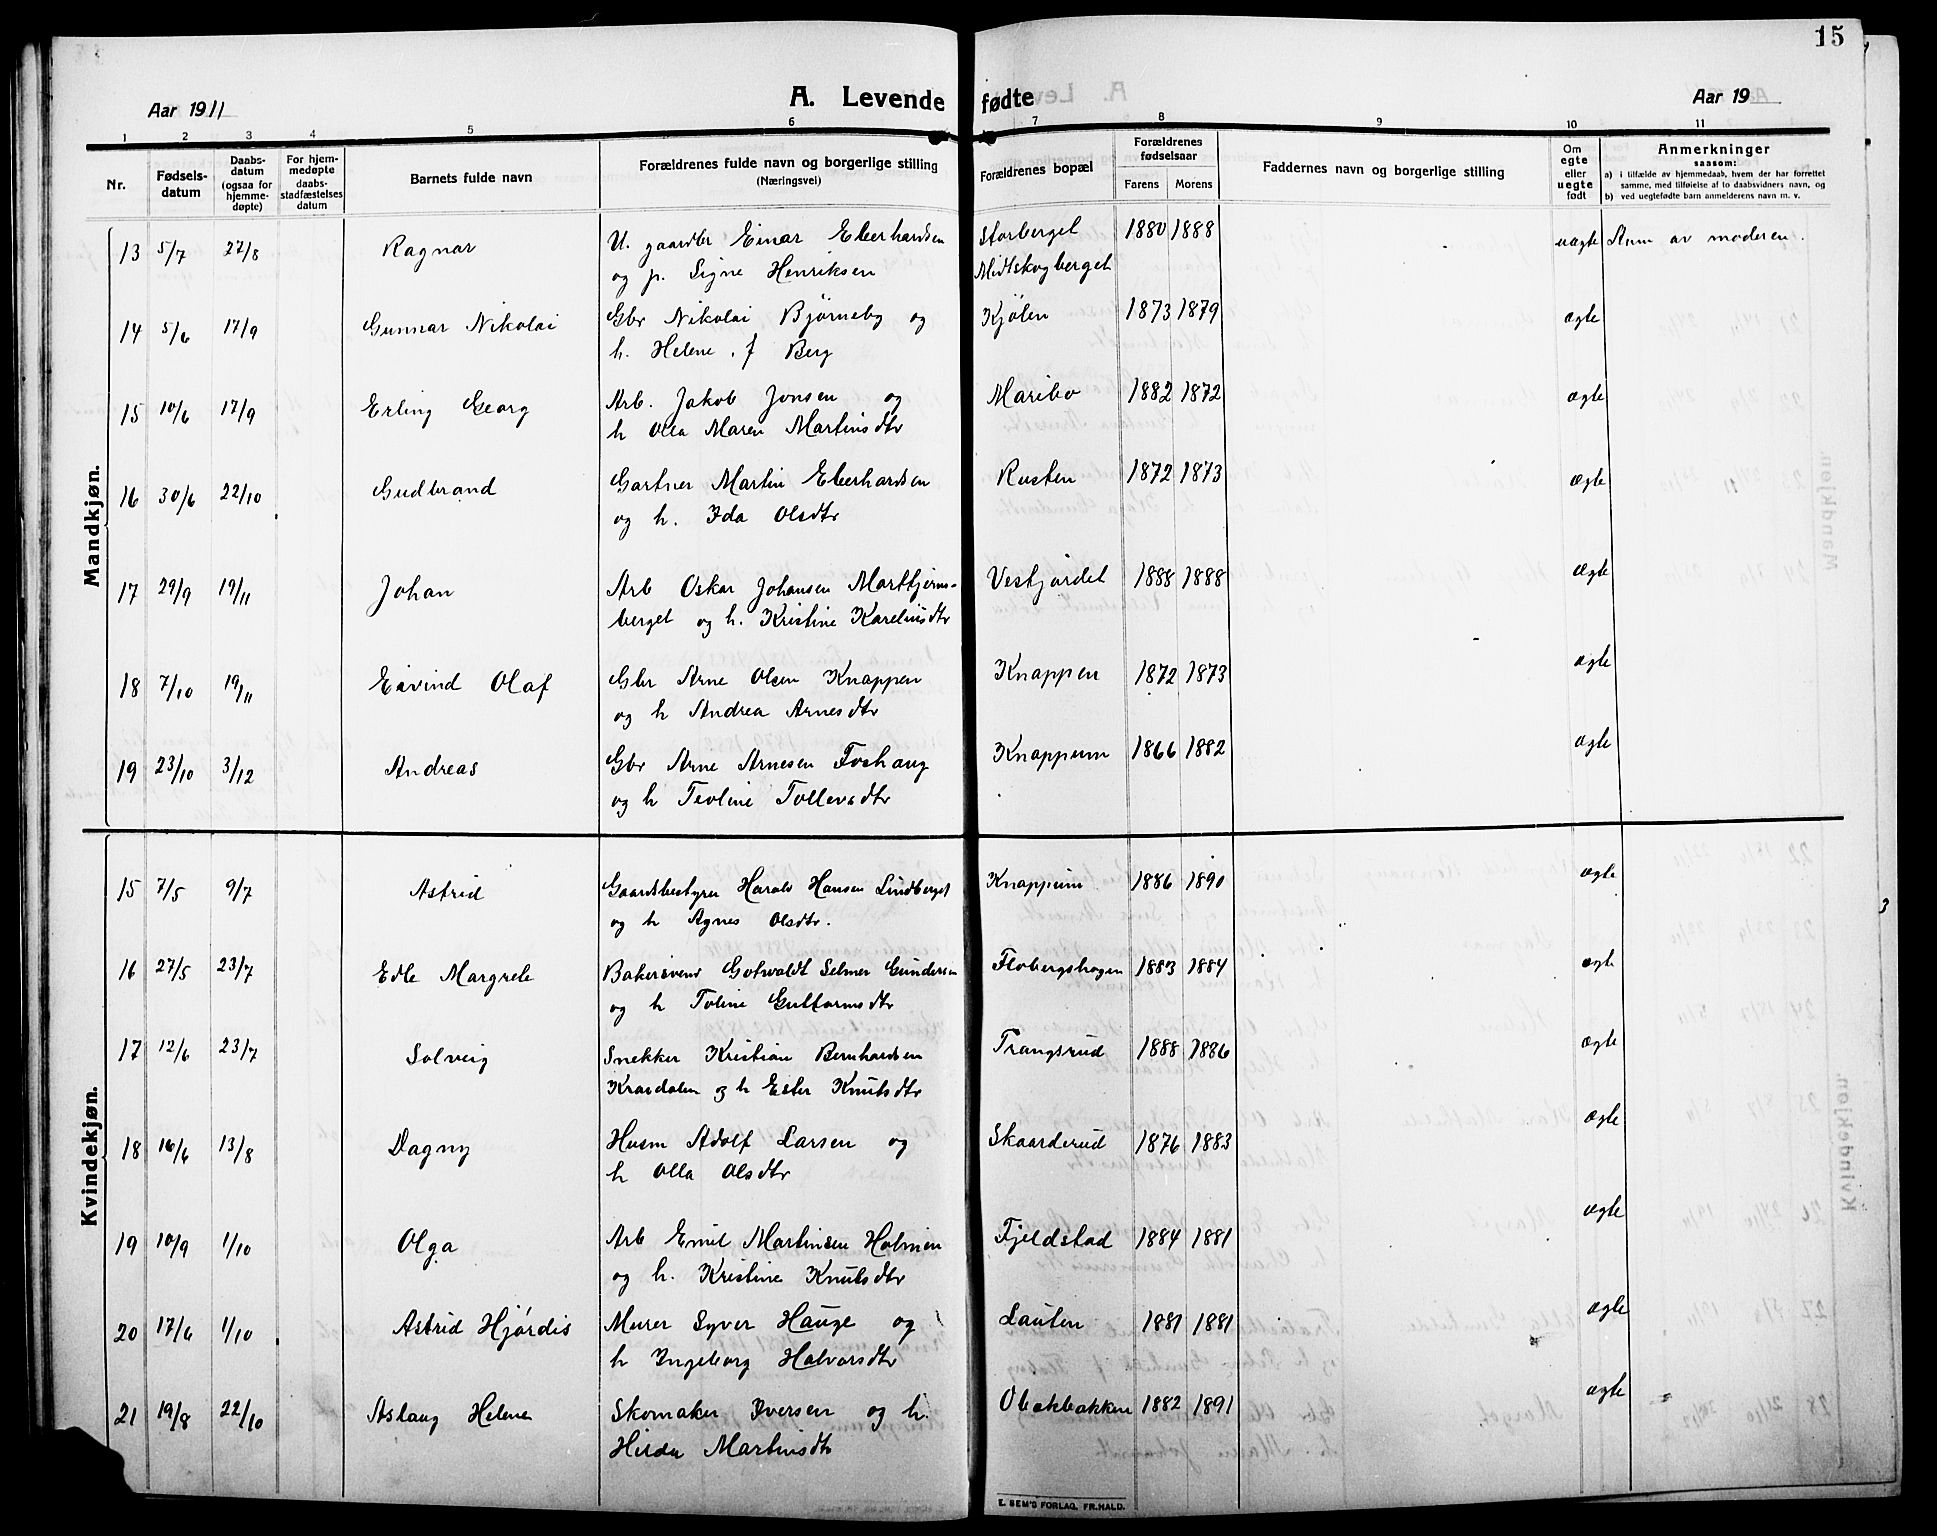 15
Aar 1911
A. Levende fødte
Aar 19
1 2 3 4 5 6 7 8 9 10 11
Nr.
Fødsels-
datum
Daabs-
datum
(ogsaa for
hjemme-
døpte)
For hjem-
medøpte
daabs-
stadfæstelses
datum
Barnets fulde navn
Forældrenes fulde navn og borgerlige stilling
(Næringsvei)
Forældrenes bopæl
Forældrenes
fødselsaar
Farens Morens
Faddernes navn og borgerlige stilling
Om
egte
eller
uegte
født
Anmerkninger
saasom:
a) i tilfælde av hjemmedaab, hvem der har forrettet
samme, med tilføielse af to daabsvidners navn, og
b) ved uegtefødte barn anmelderens navn m. v.
Mandkjøn.
13 5/7 27/8 Ragnar U. gaardbr Einar Eberhardsen Storberget 1880 1888 uægte Anm av moderen.
og p. Signe Henriksen Midtskogberget
14 5/6 17/9 Gunnar Nikolai Gbr Nikolai Bjørneby og Kjølen 1873 1879 ægte
h. Helene . f Berg
15 10/6 17/9 Erling Georg Arb. Jakob Jonsen og Maribo 1882 1872 ægte
h Olea Maren Martinsdtr
16 30/6 22/10 Gudbrand Gartner Martin Eberhardsen Rusten 1872 1873 ægte
og h. Ida Olsdtr
17 29/9 19/11 Johan Arb Oskar Johansen Marttjerns- Vestjordet 1888 1888 ægte
berget og h. Kristine Kareliusdtr
18 7/10 19/11 Eivind Olaf Gbr Arne Olsen Knappen Knappen 1872 1873 ægte
og h Andrea Arnesdtr
19 23/10 3/12 Andreas Gbr Arne Arnesen Foshaug Knappum 1866 1882 ægte
og h Teoline Tollevsdtr
Kvindekjøn.
15 7/5 9/7 Astrid Gaardsbestyrer Harald Hansen Lindberget Knappum 1886 1890 ægte
og h Agnes Olsdtr.
16 27/5 23/7 Edle Margrete Bakersvend Gotvaldt Selmer Gundersen Flobergshagen 1883 1884 ægte
og h Toline Guttormsdtr
17 12/6 23/7 Solveig Snekker Kristian Bernhardsen Trangsrud 1888 1886 ægte
Kravdalen og h Ester Knutsdtr
18 16/6 13/8 Dagny Husm Adolf Larsen og Skaarderud 1876 1883 ægte
h Olla Olsdtr
19 10/9 1/10 Olga Arb Emil Martinsen Holmen Fjeldstad 1884 1881 ægte
og h. Kristine Knutsdtr
20 17/6 1/10 Astrid Hjørdis Murer Syver Hauge og Lauten 1881 1881 ægte
h Ingeborg Halvorsdtr
21 19/8 22/10 Aslaug Helene Skomaker Iversen og h. 1882 1891 ægte
Hilda Martinsdtr
E. SEM'S FORLAG, FR.HALD.